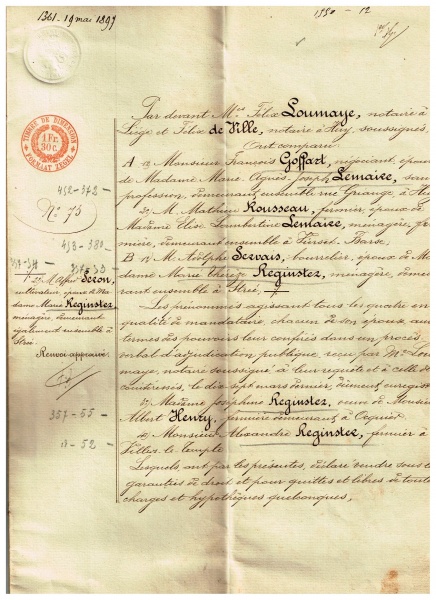 1361. 19 mai 1897
1550 - 12
TIMBRE DE DIMENSION
1 Fr.
30 c.
FORMAAT ZEGEL
Par devant Mes Félix Loumaye, notaire à
Liège et Félix de Ville, notaire à Huy, soussignés,
Ont comparu
A a) Monsieur François Goffart, négociant, époux
de Madame Marie Agnès Joseph Lemaire, sans
profession, demeurant ensemble rue Grange à Huy
b) M. Mathieu Rousseau, fermier, époux de
Madame Elise Lambertine Lemaire, ménagère, fer-
mière, demeurant ensemble à Vierset-Barse.
B a) M. Adolphe Servais, bourrelier, époux de Ma-
dame Marie Thérèze Reginster, ménagère, demeu-
rant ensemble à Strée
Les prénommés agissant tous les quatre en
qualité de mandataire, chacun de son époux, aux
termes des pouvoirs leur conférés dans un procès-
verbal d'adjudication publique, reçu par Me Lou-
maye, notaire soussigné à leur requête et à celle de
comtesses, le dix sept mars dernier, dûment enregistré
c) Madame Joséphine Reginster, veuve de Monsieur
Albert Henry, fermière demeurant à
d) Monsieur Alexandre Reginster, fermier à
Villers-le-temple
Lesquels ont par les présentes, déclaré vendre sous les
garanties de droit et pour quittes et libres de toutes
charges et hypothèques quelconques,
458-372
No 75
458-380
357-55
b) M. Alfred Seron,
cultivateur, époux de Ma-
dame Marie Reginster,
ménagère, demeurant
également ensemble à
Strée
Renvoi approuvé
357-55
18-52